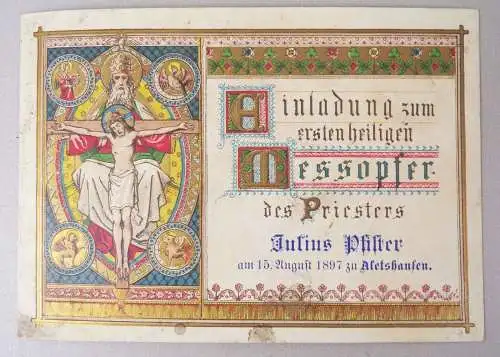 Einladung zum
ersten heiligen
Messopfer
des Priesters
Julius Pfister
am 15. August 1897 zu Aletshausen.